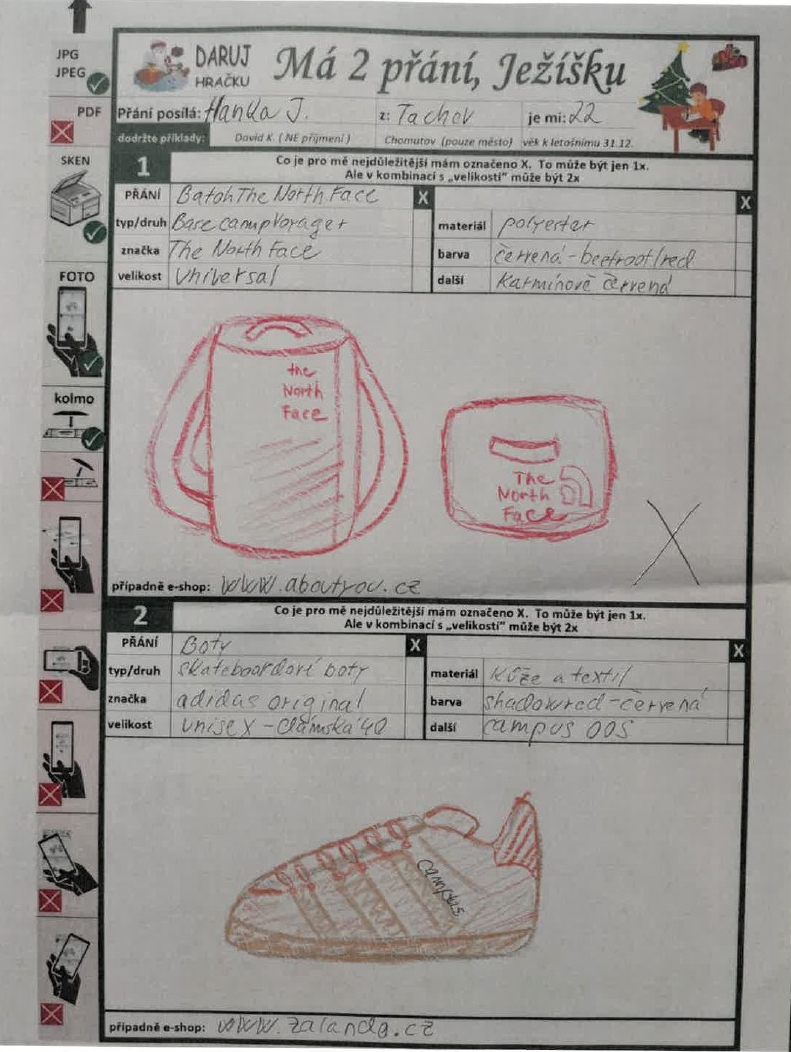 JPG
JPEG
PDF
SKEN
FOTO
kolmo
DARUJ
HRAČKU
Má 2 přání, Ježíšku
Přání posílá: Hanka J. z: Tachov je mi: 22
dodržte příklady: David K. ( NE příjmení ) Chomutov (pouze město) věk k letošnímu 31.12.
1 Co je pro mě nejdůležitější mám označeno X. To může být jen 1x.
Ale v kombinaci s „velikostí" může být 2x
PŘÁNÍ Batoh The North Face X X
typ/druh Base camp Voyager materiál polyester
značka The North Face barva červená - beetroot/red
velikost Universal další Karmínově červená
the
North
Face
The
North
Face
X
případně e-shop: www.aboutyou.cz
2 Co je pro mě nejdůležitější mám označeno X. To může být jen 1x.
Ale v kombinaci s „velikostí" může být 2x
PŘÁNÍ Boty X X
typ/druh skateboardové boty materiál Kůže a textil
značka adidas original barva shadowred - červená
velikost unisex - dámská 40 další campus 00S
Campus
případně e-shop: www.zalando.cz